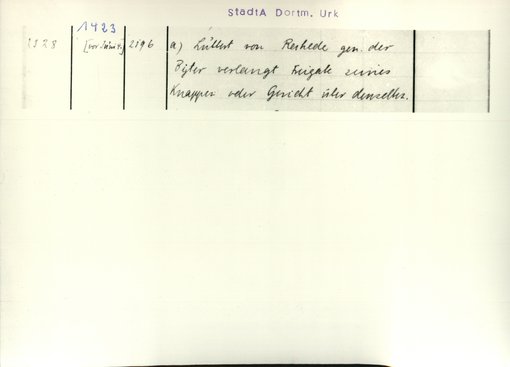 StadtA Dortm. Urk
1423
1528 [vor Juni 4.] 2596 a) Lübbert von Reshede gen. der
Bijter verlangt Freigabe seines
Knappen oder Gericht über denselben.